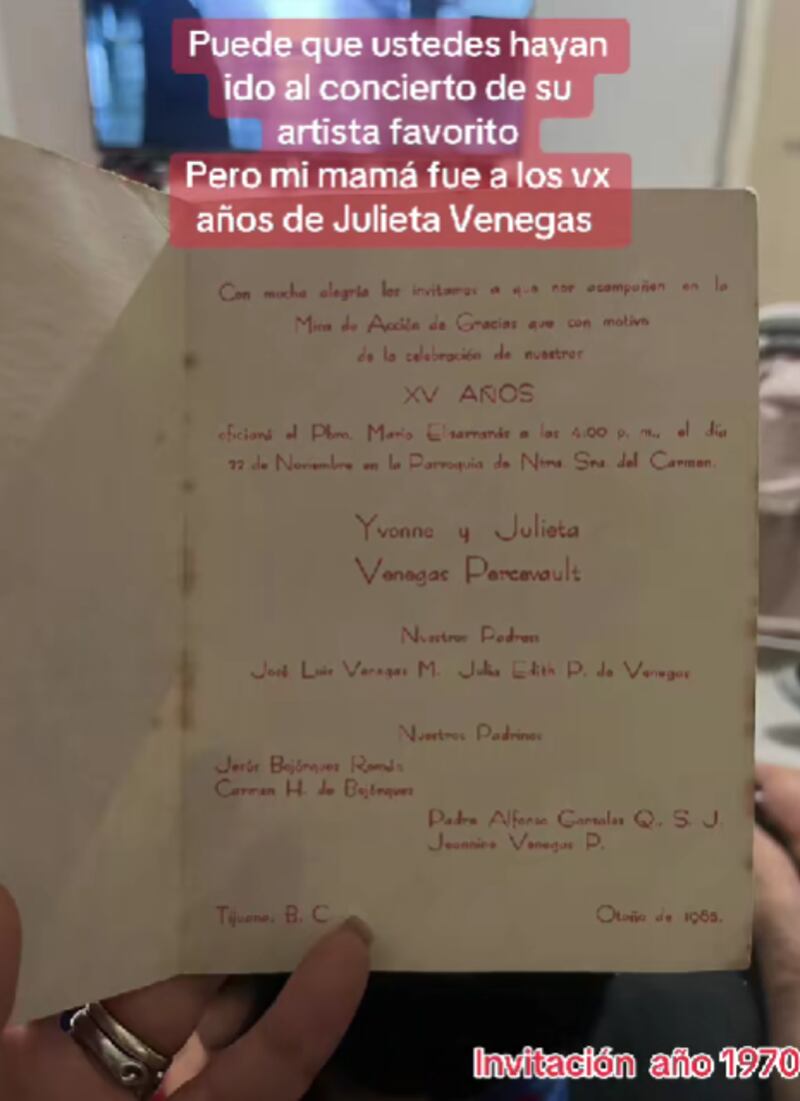 Puede que ustedes hayan
ido al concierto de su
artista favorito
Pero mi mamá fue a los vx
años de Julieta Venegas
Con mucha alegría los invitamos a que nos acompañen en la
Misa de Acción de Gracias que con motivo
de la celebración de nuestros
XV AÑOS
oficiará el Pbro. Mario a las 4:00 p. m., el día
22 de Noviembre en la Parroquia de Ntra. Sra. del Carmen.
Yvonne y Julieta
Venegas Percevault
Nuestros Padres
José Luis Venegas M. Julia Edith P. de Venegas
Nuestros Padrinos
Jesús Bojórquez Román
Carmen H. de Bojórquez
Padre Alfonso González Q., S. J.
Jeannine Venegas P.
Tijuana, B. C.
Otoño de 1985.
Invitación año 1970